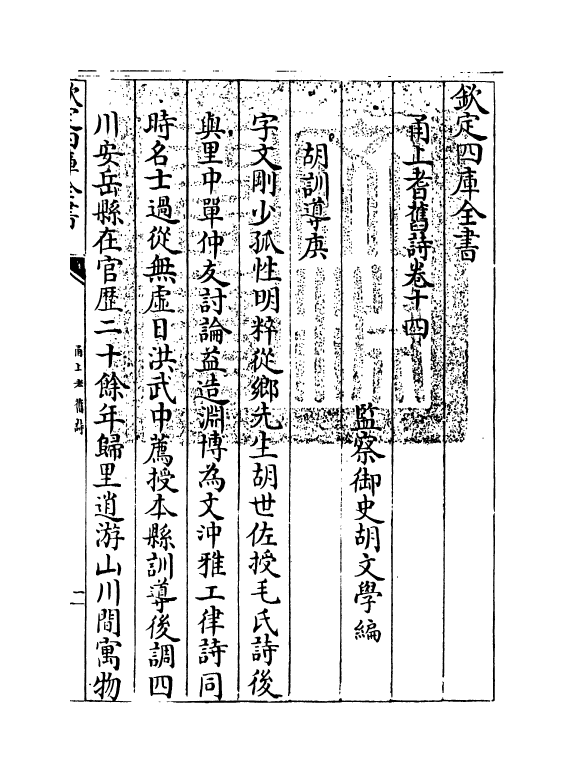 欽定四庫全書
甬上耆舊詩卷十四
監察御史胡文學編
胡訓導庚
字文剛少孤性明粹從鄉先生胡世佐授毛氏詩後
與里中單仲友討論益造淵博為文沖雅工律詩同
時名士過從無虛日洪武中薦授本縣訓導後調四
川安岳縣在官歷二十餘年歸里逍游山川間寓物
欽定四庫全書
甬上耆舊詩